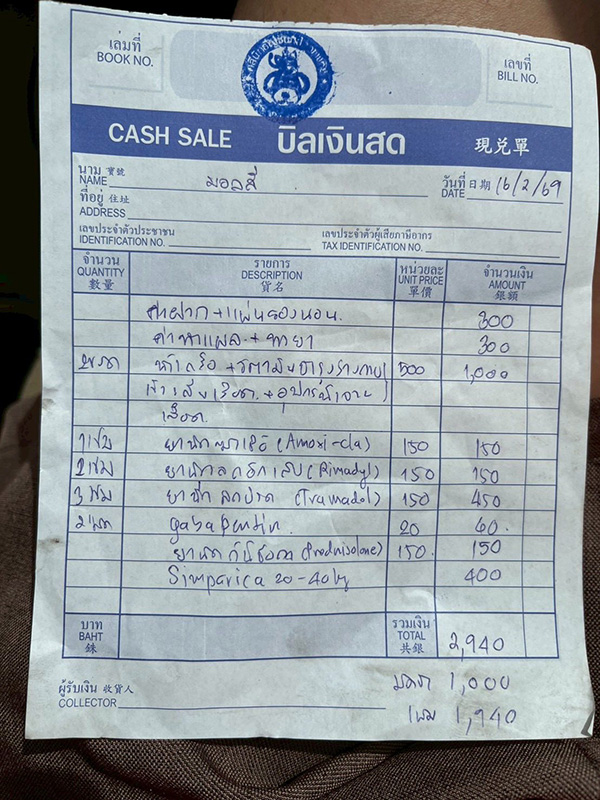 เล่มที่
BOOK NO.
เลขที่
BILL NO.
CASH SALE บิลเงินสด 現兑單
นาม 寶號
NAME มอลลี่
วันที่ 日期
DATE 16/2/69
ที่อยู่ 住址
ADDRESS
เลขประจำตัวประชาชน
IDENTIFICATION NO.
เลขประจำตัวผู้เสียภาษีอากร
TAX IDENTIFICATION NO.
จำนวน
QUANTITY
數量
รายการ
DESCRIPTION
貨名
หน่วยละ
UNIT PRICE
單價
จำนวนเงิน
AMOUNT
銀額
ค่าฝาก + แผ่นรองนอน 300
ค่าทำแผล + ทายา 300
น้ำเกลือ + วิตามินบำรุงร่างกาย 500 1,000
+ อุปกรณ์เจาะ
เลือด
ยาฆ่าเชื้อ (Amoxi-cla) 150 150
ยาลดอักเสบ (Rimadyl) 150 150
3 เข็ม ยาฉีดลดปวด (Tramadol) 150 450
gabapentin 20 40
(Prednisolone) 150 150
Simparica 20-40kg 400
บาท
BAHT
銖
รวมเงิน
TOTAL
共銀
2,940
มัดจำ 1,000
ผู้รับเงิน 收貨人
COLLECTOR
1,940